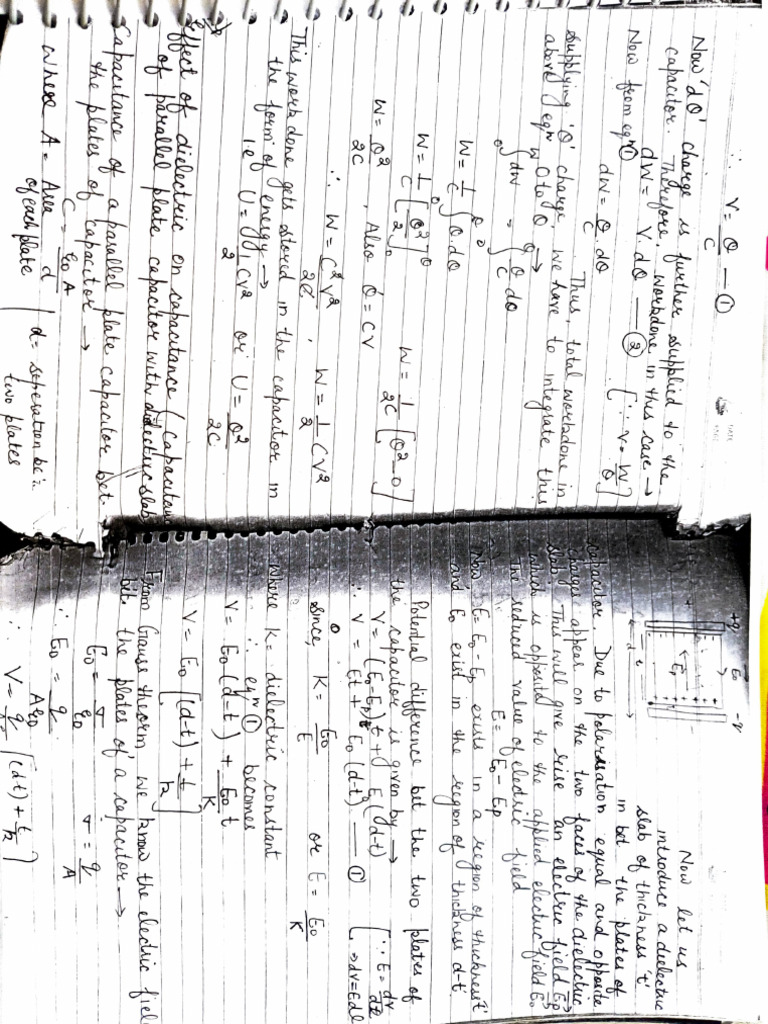 ∴ V = Q/C — ①
Now 'dQ' charge is further supplied to the
capacitor. Therefore, workdone in this case →
dW = V.dQ — ② [∵ V = W/Q]
Now from eqn ①
dW = Q/C . dQ
Thus, total workdone in
supplying 'Q' charge, we have to integrate this
above eqn w 0 to Q →
∫dW = ∫ Q/C dQ
W = 1/C ∫ Q.dQ
W = 1/C [Q²/2] W = 1/2C [Q² - 0]
W = Q²/2C , Also Q = CV
∴ W = C²V²/2C , W = 1/2 CV²
This workdone gets stored in the capacitor in
the form of energy →
i.e U = 1/2 CV² or U = Q²/2C
Effect of dielectric on capacitance (capacitance
of parallel plate capacitor with dielectric slab
Capacitance of a parallel plate capacitor bet
the plates of capacitor →
C = ε0 A/d
where A = Area of each plate | d = seperation b/w two plates
+q E0 -q
Ep
t
d
Now let us
introduce a dielectric
slab of thickness 't'
in bet the plates of
capacitor. Due to polarisation equal and opposite
charges appear on the two faces of the dielectric
slab. This will give rise an electric field Ep
which is opposite to the applied electric field E0
The reduced value of electric field
E = E0 - Ep
Now E = E0 - Ep exists in a region of thickness 't'
and E0 exist in the region of thickness d-t.
Potential difference bet the two plates of
the capacitor is given by →
V = (E0 - Ep)t + E0(d-t) [∵ E = dV/dl
∴ V = Et + E0(d-t) — ① ⇒ dV = Edl
since, K = E0/E or E = E0/K
where K = dielectric constant
∴ eqn ① becomes
V = E0(d-t) + E0/K t
V = E0 [(d-t) + t/k]
From Gauss theorm, we know the electric fiel
bet the plates of a capacitor →
E0 = σ/ε0 σ = q/A
∴ E0 = q/Aε0
∴ V = [(d-t) + t/k]